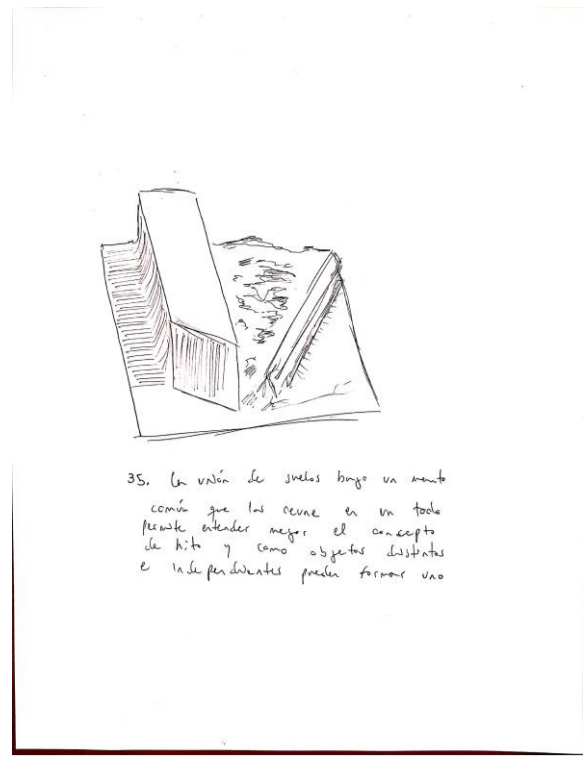 35. La unión de suelos bajo un manto
común que las reune en un todo
permite entender mejor el concepto
de hito y como objetos distintos
e independientes pueden formar uno